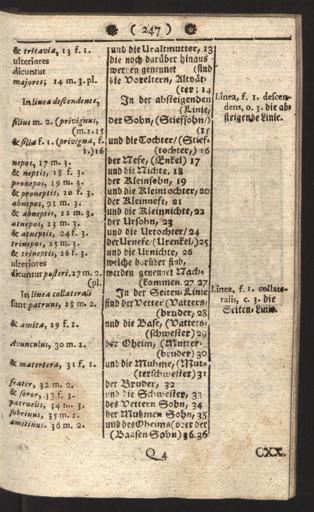 ( 247 )
& tritavia, 13 f. 1.
ulteriores
dicuntur
majores; 14 m. 3. pl.
In linea descendente,
filius m. 2. (privignus,
(m. 2. 15
& filia f. 1. (privigna, f.
1.) 16
nepos, 17 m. 3.
& neptis, 18 f. 3.
pronepos, 19 m. 3.
& proneptis, 20 f. 3.
abnepos, 21 m. 3.
& abneptis, 22 m. 3.
atnepos, 23 m. 3.
& atneptis, 24 f. 3.
trinepos, 25 m. 3.
& trineptis, 26 f. 3.
ulteriores
dicuntur posteri. 27 m. 2.
(pl.
In linea collaterali
sunt patruus, 28 m. 2.
& amita, 29 f. 1.
Avunculus, 30 m. 2.
& matertera, 31 f. 1.
frater, 32 m. 2.
& soror, 33 f. 3.
patruelis, 34 m. 3.
sobrinus, 35 m. 2.
amitinus. 36 m. 2.
und die Uraltmutter, 13
die noch darüber hinaus
werden genennet (sind
die Voreltern, Altvät-
ter; 14
In der absteigenden
(Linie,
der Sohn, (Stiefsohn/)
(15
und die Tochter/ (Stief-
(tochter,) 16
der Nefe, (Enkel) 17
und die Nichte, 18
der Kleinsohn, 19
und die Kleintochter, 20
der Kleinnefe, 21
und die Kleinnichte, 22
der Ursohn, 23
und die Urtochter/ 24
der Urnefe/ (Urenkel/) 25
und die Urnichte, 26
welche darüber sind,
werden genennet Nach-
(kommen. 27 27
In der Seiten-Linie
sind der Vetter (Vatters-
(bruder, 28
und die Base, (Vatters-
(schwester) 29
der Oheim, (Mutter-
(bruder) 30
und die Muhme, (Mut-
(terschwester) 31
der Bruder, 32
und die Schwester, 33
des Vettern Sohn, 34
der Muhmen Sohn, 35
und des Oheims (oder der
(Baasen Sohn) 36. 36
Linea, f. 1. descen-
dens, o. 3. die ab-
steigende Linie.
Linea, f. 1. collate-
ralis, c. 3. die
Seiten-Linie.
Q 4
CXX.